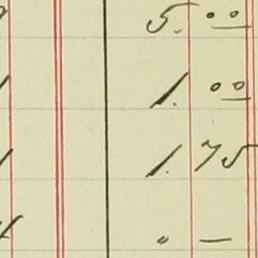 5. 00
1. 00
1. 75
" —